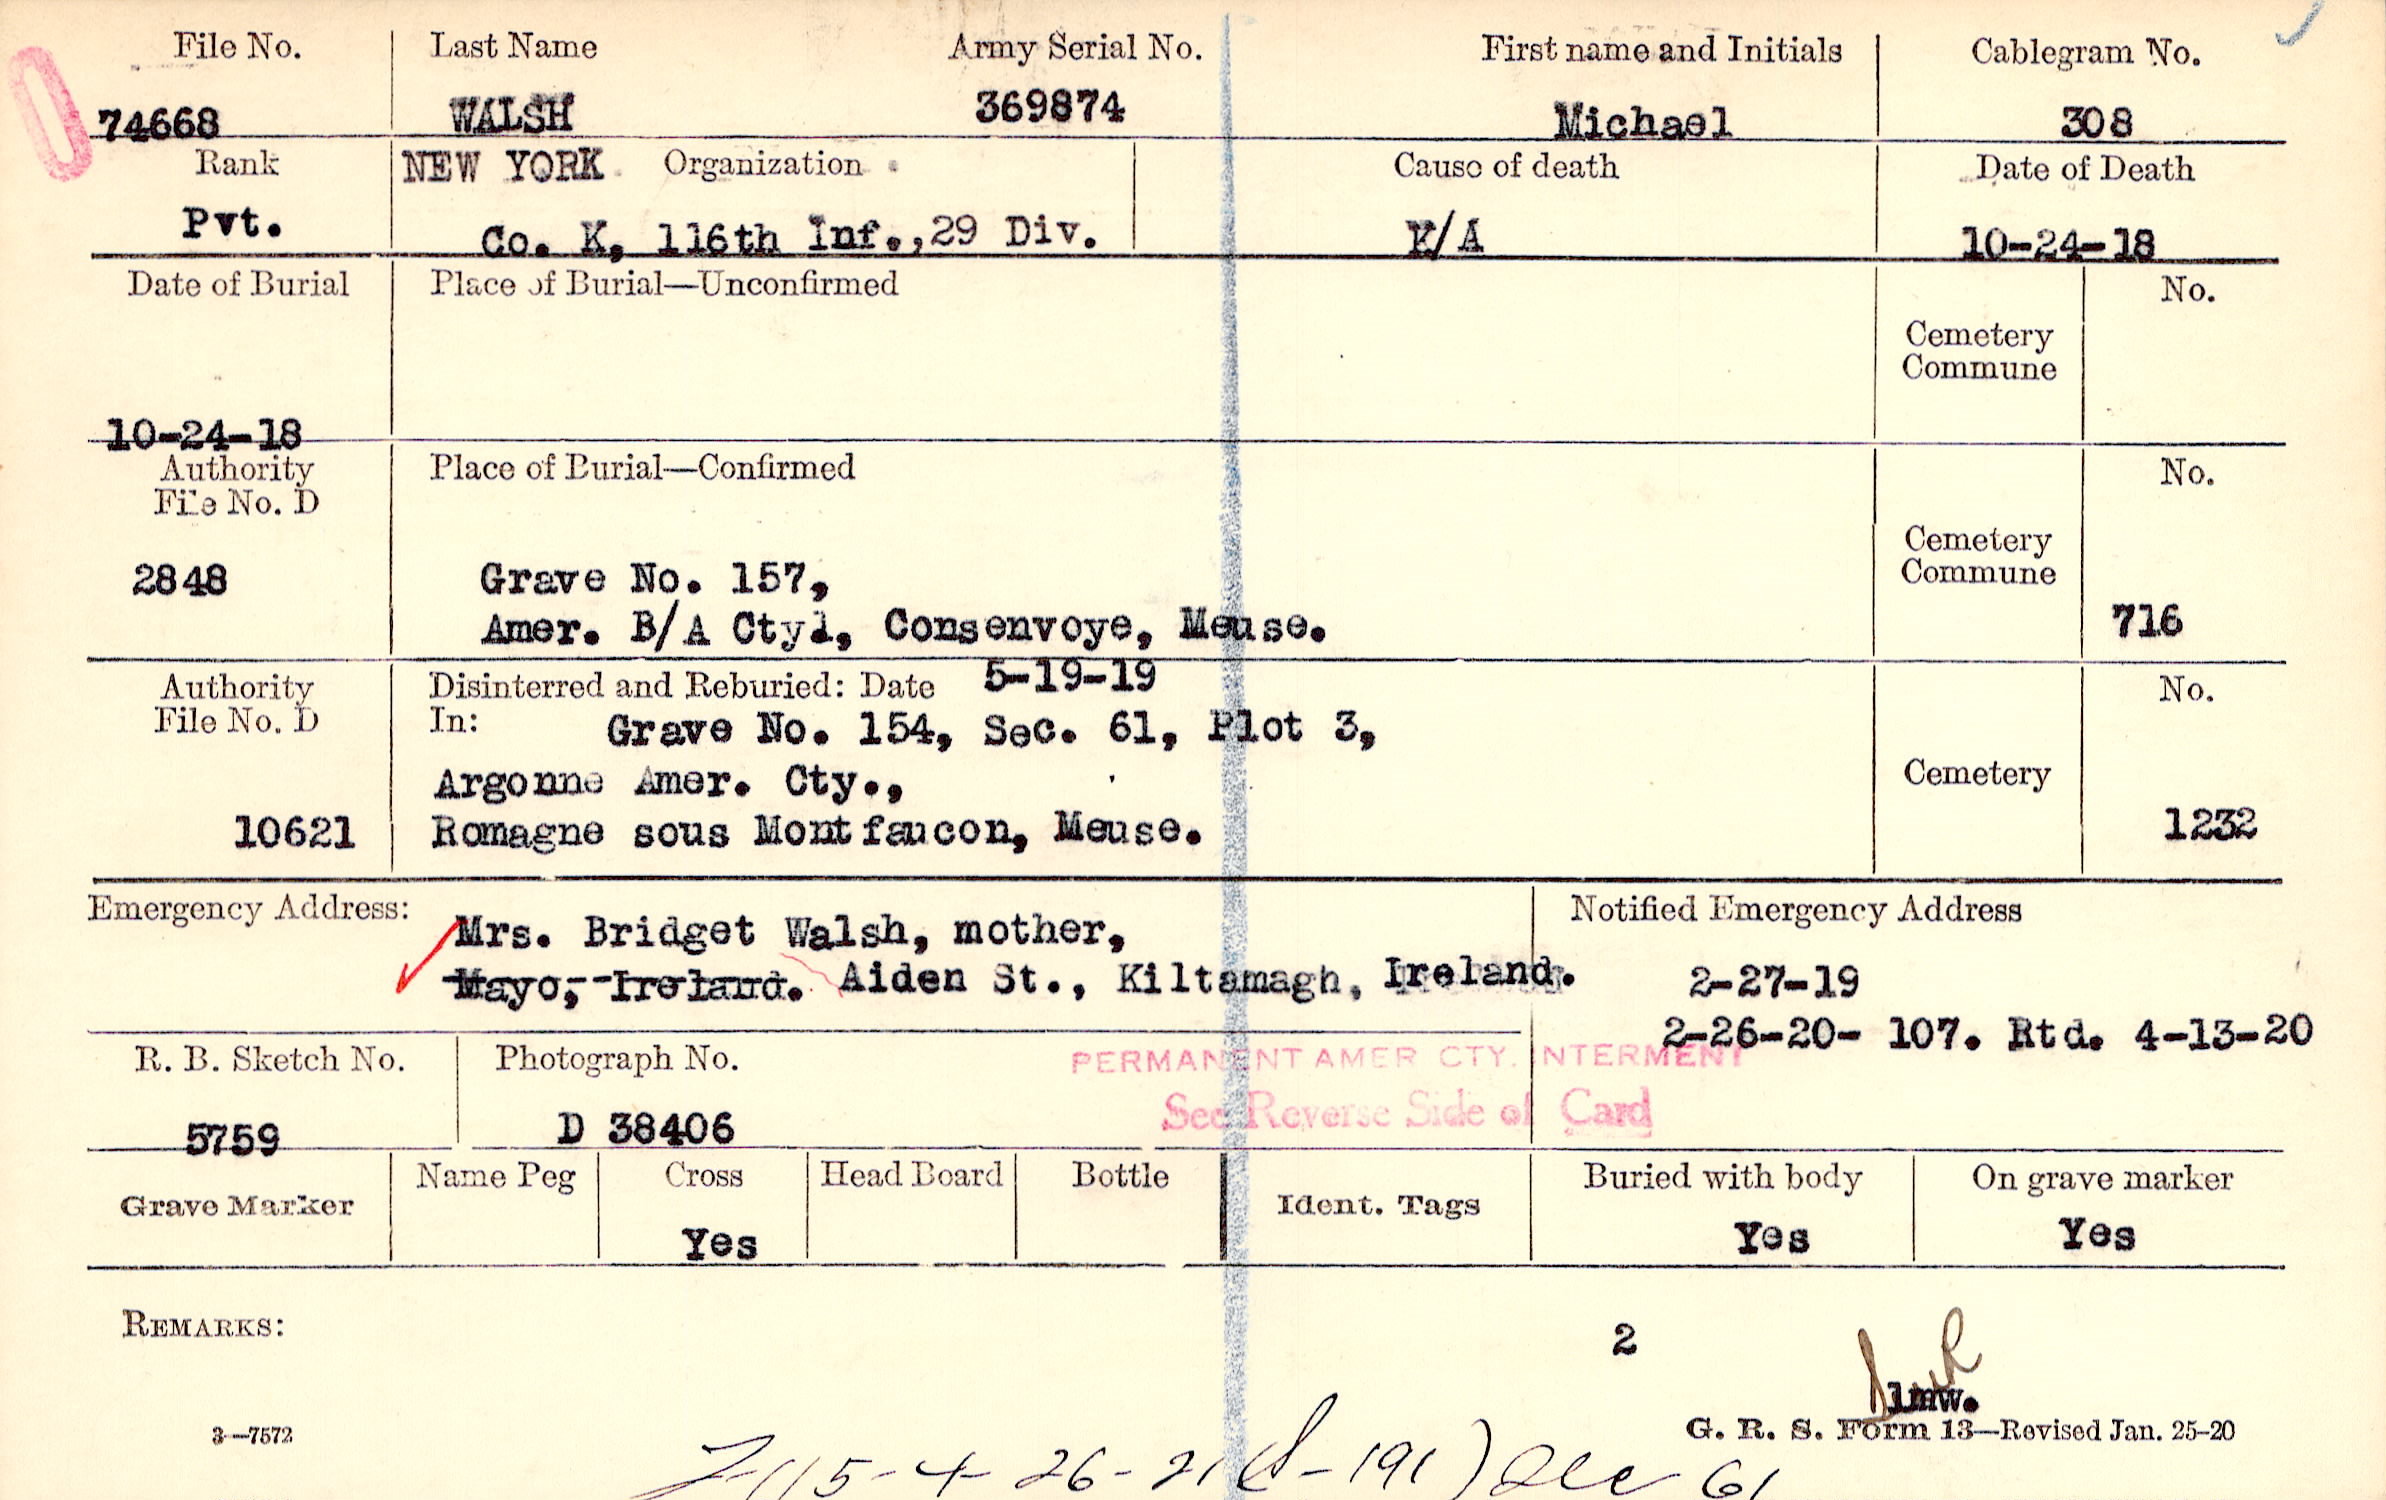 File No. Last Name Army Serial No. First name and Initials Cablegram No.
74668 WALSH 369874 Michael 308
Rank NEW YORK Organization Cause of death Date of Death
Pvt. Co. K, 116th Inf.,29 Div. K/A 10-24-18
Date of Burial Place of Burial—Unconfirmed No.
Cemetery
Commune
10-24-18
Authority Place of Burial—Confirmed No.
File No. D
Cemetery
2848 Grave No. 157, Commune
Amer. B/A Cty1, Consenvoye, Meuse. 716
Authority Disinterred and Reburied: Date 5-19-19 No.
File No. D In: Grave No. 154, Sec. 61, Plot 3,
Argonne Amer. Cty., Cemetery
10621 Romagne sous Montfaucon, Meuse. 1232
Emergency Address: Mrs. Bridget Walsh, mother, Notified Emergency Address
Mayo, Ireland. Aiden St., Kiltamagh, Ireland. 2-27-19
2-26-20- 107. Rtd. 4-13-20
R. B. Sketch No. Photograph No. PERMANENT AMER CTY. INTERMENT
5759 D 38406 See Reverse Side of Card
Grave Marker Name Peg Cross Head Board Bottle Ident. Tags Buried with body On grave marker
Yes Yes Yes
REMARKS: 2
lmw.
3—7572 G. R. S. Form 13—Revised Jan. 25-20
5-4-26-21 (S-191) 61